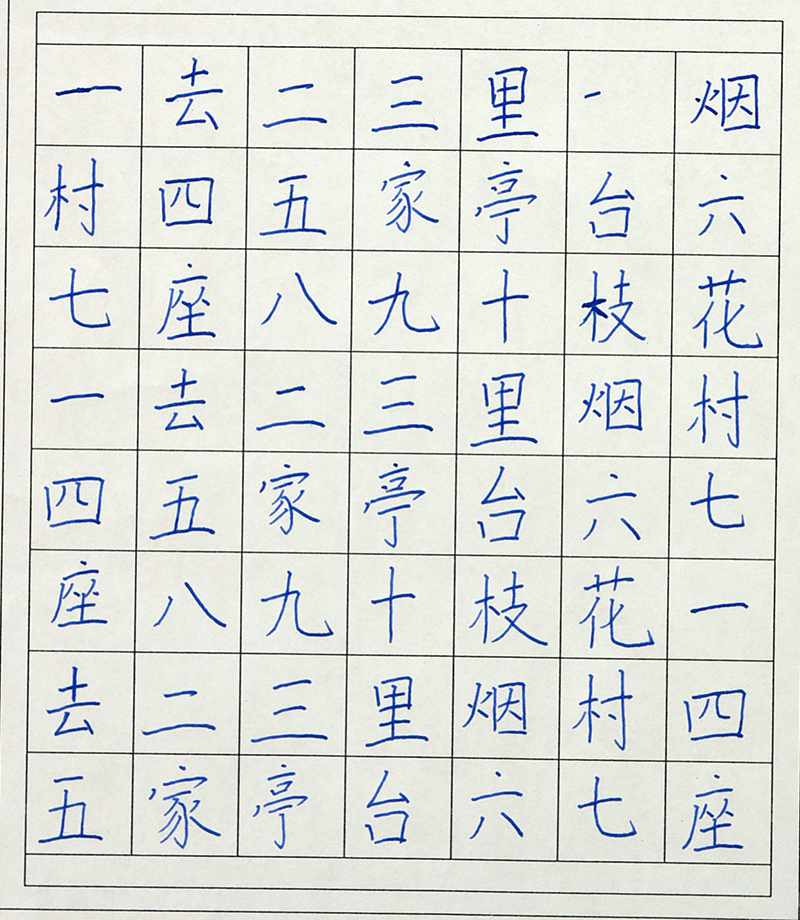 一去二三里一烟
村四五家亭台六
七座八九十枝花
一去二三里烟村
四五家亭台六七
座八九十枝花一
去二三里烟村四
五家亭台六七座